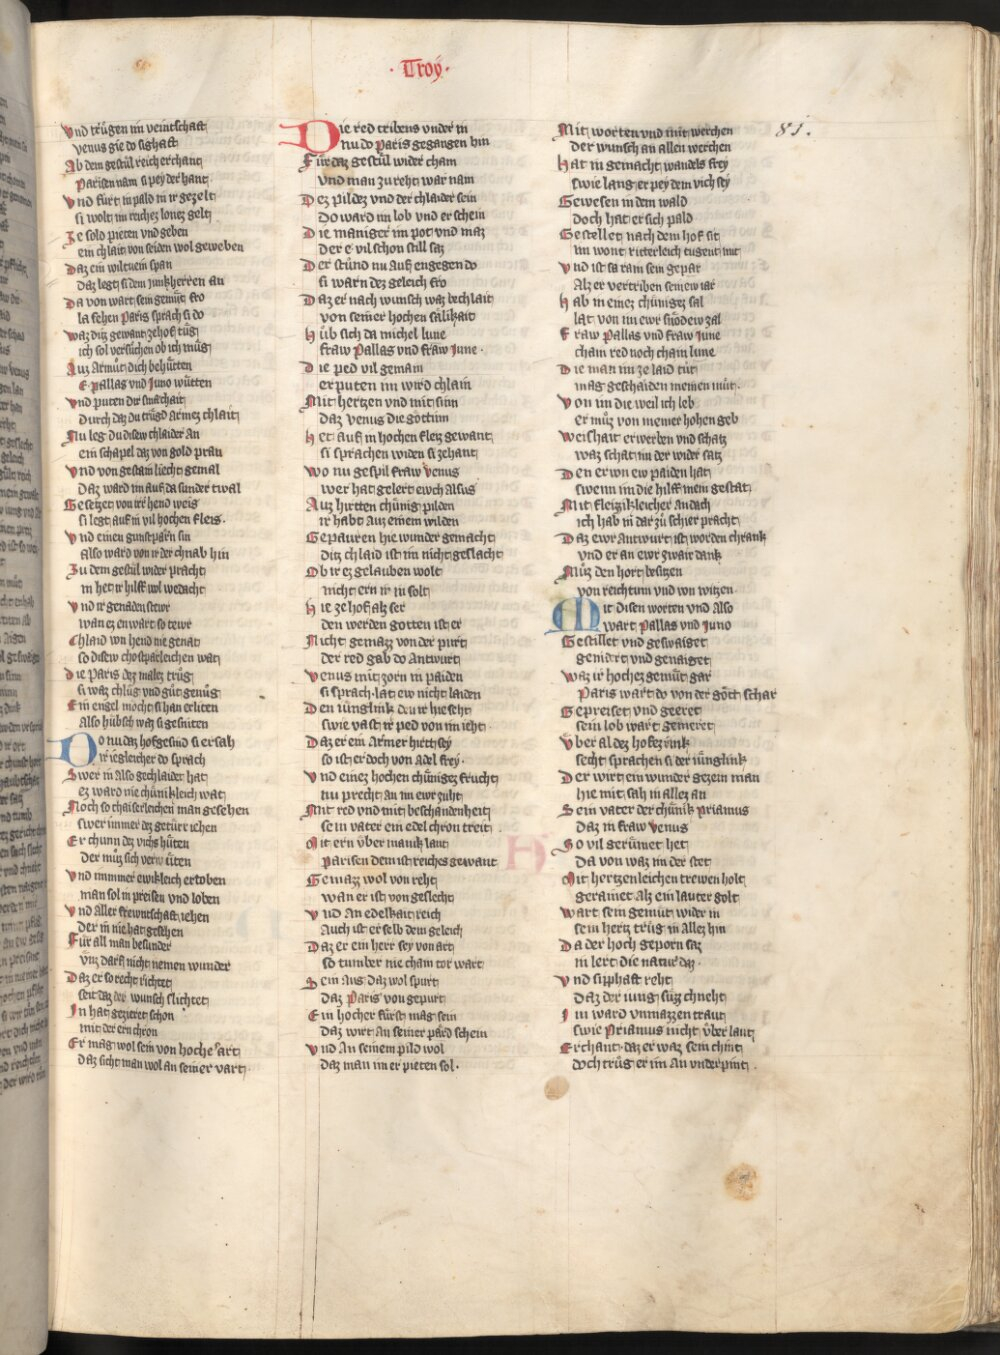 · Troÿ ·
81.
Vnd trůgen im veintschaft
Venus gie do sighaft
Ab dem gestůl reich erchant
Parisen nam si pey der hant
Vnd fůrt in pald in ir gezelt
si wolt im reichez lonez gelt
Ze sold pieten vnd geben
ein chlait von seiden wol geweben
Daz ein wiltuem span
Daz legt si dem iunkherren an
Da von wart sein gemůt fro
la sehen Paris sprach si do
waz ditz gewant ze hof tůg
ich sol versůchen ob ich můg
Auz Armůt dich behůtten
E. Pallas vnd Juno wůtten
Vnd puten dir smachait
Durch daz du trůgd Armez chlait
Nu leg du disew chlaider An
ein schapel daz von gold pran
Vnd von gestain liecht gemal
Daz ward im auf da sunder twal
Gesetzet von irr hend weis
si legt auf in vil hochen fleis.
Vnd einen gunst par sin
Also ward von ir der chnab hin
Zu dem gestůl wider pracht
in het ir hilff wol wedacht
Vnd ir genaden stewr
wan ez en wart so tewr
Chlaid von hend nie genat
so disew chosparleichen wat
Die Paris dez malez trůg
si waz chlůg vnd gůt genůg
Ein engel mocht si han erliten
Also hůbsch waz si gesniten
Do nu daz hofgesind si ersah
Ir iegleicher do sprach
Swer in Also gechlaider hat
ez ward nie chůnikleich wat
Noch so chaiserleichen man gesehen
swer immer dez getůrr iehen
Er chunn dez vichs hůten
Der můz sich verwůten
Vnd immmer ewikleich ertoben
man sol in preisen vnd loben
Vnd aller frewntschaft iehen
Der in nie hat gesehen
Fůr all man besunder
Vnz darf nicht nemen wunder
Daz er so recht richtet
seit daz der wunsch slichtet
In hat gezieret schon
mit der ern chron
Er mag wol sein von hocher art
Daz sicht man wol an seiner vart
Die red tribens vnder in
nu do Paris gegangen hin
Fůr daz gestůl wider cham
vnd man zu reht war nam
Dez pildez vnd der chlaider sein
Do ward im lob vnd er schein
Die maniger im pot vnd maz
der e vil schon still saz
Der stůnd nu auf engegen do
si warn dez geleich fro
Daz er nach wunsch waz bechlait
von seiner hochen sälikait
Hůb sich da michel lune
fraw Pallas vnd fraw June.
Die ped vil gemain
erputen im wird chlain
Mit hertzen vnd mit sinn
daz Venus die gottinn
Het auf in hochen fleiz gewant
si sprachen widen si zehant
Wo nu gespil fraw Venus
wer hat gelert ewch Alsus
Auz hirtten chůnig pilden
ir habt auz einem wilden
Gepauren hie wunder gemacht
ditz chlaid ist im nicht geslacht
Ob ir ez gelauben wolt
nicht ern ir in solt
Hie ze hof alz ser
den werden gotten ist er
Nicht gemazz von der purt
der red gab do Antwurt
Venus mit zorn in paiden
si sprach lat ew nicht laiden
Den iůnglink den ir hie secht
swie vast ir ped von im iecht.
Daz er ein Armer hirtt sey
so ist er doch von Adel frey.
Vnd einez hochen chůnigez frucht
nu precht An im ewr zuht
Mit red vnd mit beschaidenheit
sein vater ein edel chron treit
Mit ern ůber manik lant
Parisen dem ist reichez gewant
Gemazz wol von reht
wan er ist von geslecht
Vnd An edelkait reich
Auch ist er selb dem geleich
Daz er ein herr sey von art
so tumber nie cham tor wart
Sein Aug daz wol spurt
daz Paris von gepurt
Ein hocher fůrst mag sein
daz wirt An seiner pard schein
Vnd An seinem pild wol
daz man im er pieten sol.
Mit worten vnd mit werchen
der wunsch an allen werchen
Hat in gemacht wandels frey
swie lang er pey dem vich sey
Gewesen in dem wald
doch hat er sich pald
Gestellet nach dem hof sit
im wont ritterleich tugent mit
Vnd ist sa ram sein gepar
Alz er vertriben sein ew iar
Hab in einez chůnigez sal
lat von im ewr snödew zal
Fraw Pallas vnd fraw June
cham red noch cham lune
Die man im ze laid tůt
mag geschaiden meinen můt.
Von im die weil ich leb
er můz von meiner hohen geb
Weishait erwerben vnd schatz
waz schat im der wider satz
Den er von ew paiden hat
swenn im die hilff mein gestat
Mit fleizzikleicher andach
ich hab in dar zů schier pracht
Daz ewr Antwurt ist worden chrank
vnd er an ewr zwair dank
Můz den hort besitzen
von reichtum vnd von witzen
Mit disen worten vnd Also
wart Pallas vnd Juno
Gestillet vnd gesweiget
genidert vnd genaiget
Waz ir hochez gemůt gar
Paris wart do von der gött schar
Gepreiset vnd geeret
sein lob wart gemeret
Vber al dez hofez rink
secht sprachen si der iůnglink
Der wirt ein wunder gezein man
hie mit sah in allez an
Sein vater der chůnik Priamus
daz in fraw Venus
So vil gerůmet het
Da von waz im der stet
Mit hertzenleichen trewen holt
gerainet alz ein lauter golt
Wart sein gemůt wider in
sein hertz trůg in allez hin
Da der hoch geporn saz
in lert die natur daz.
Vnd sipphaft reht
daz der iung sůzz chneht
Im ward vnmazzen traut
swie Priamus nicht ůber laut
Erchant. daz er waz sein chint
doch trůg er im An vnderpint.